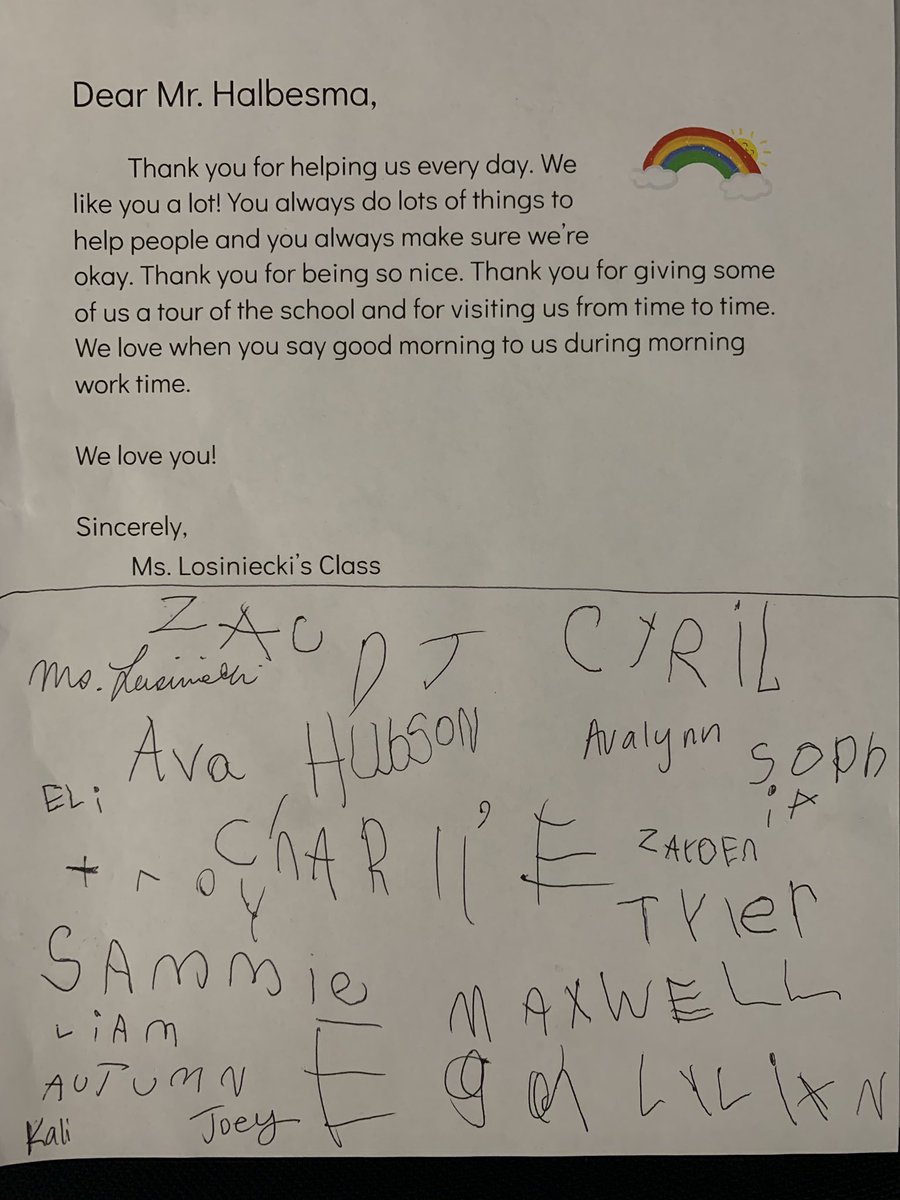 Dear Mr. Halbesma,
Thank you for helping us every day. We
like you a lot! You always do lots of things to
help people and you always make sure we're
okay. Thank you for being so nice. Thank you for giving some
of us a tour of the school and for visiting us from time to time.
We love when you say good morning to us during morning
work time.
We love you!
Sincerely,
Ms. Losiniecki's Class
ZAC
DJ
CYRIL
Ms. Losiniecki
Ava
HUdSON
Avalynn
SOPh
iA
ELi
ChARli'E
+roy
TYler
SAmmie
MAXWELL
LiAm
AUTUMN
LYLiAN
Kali
Joey